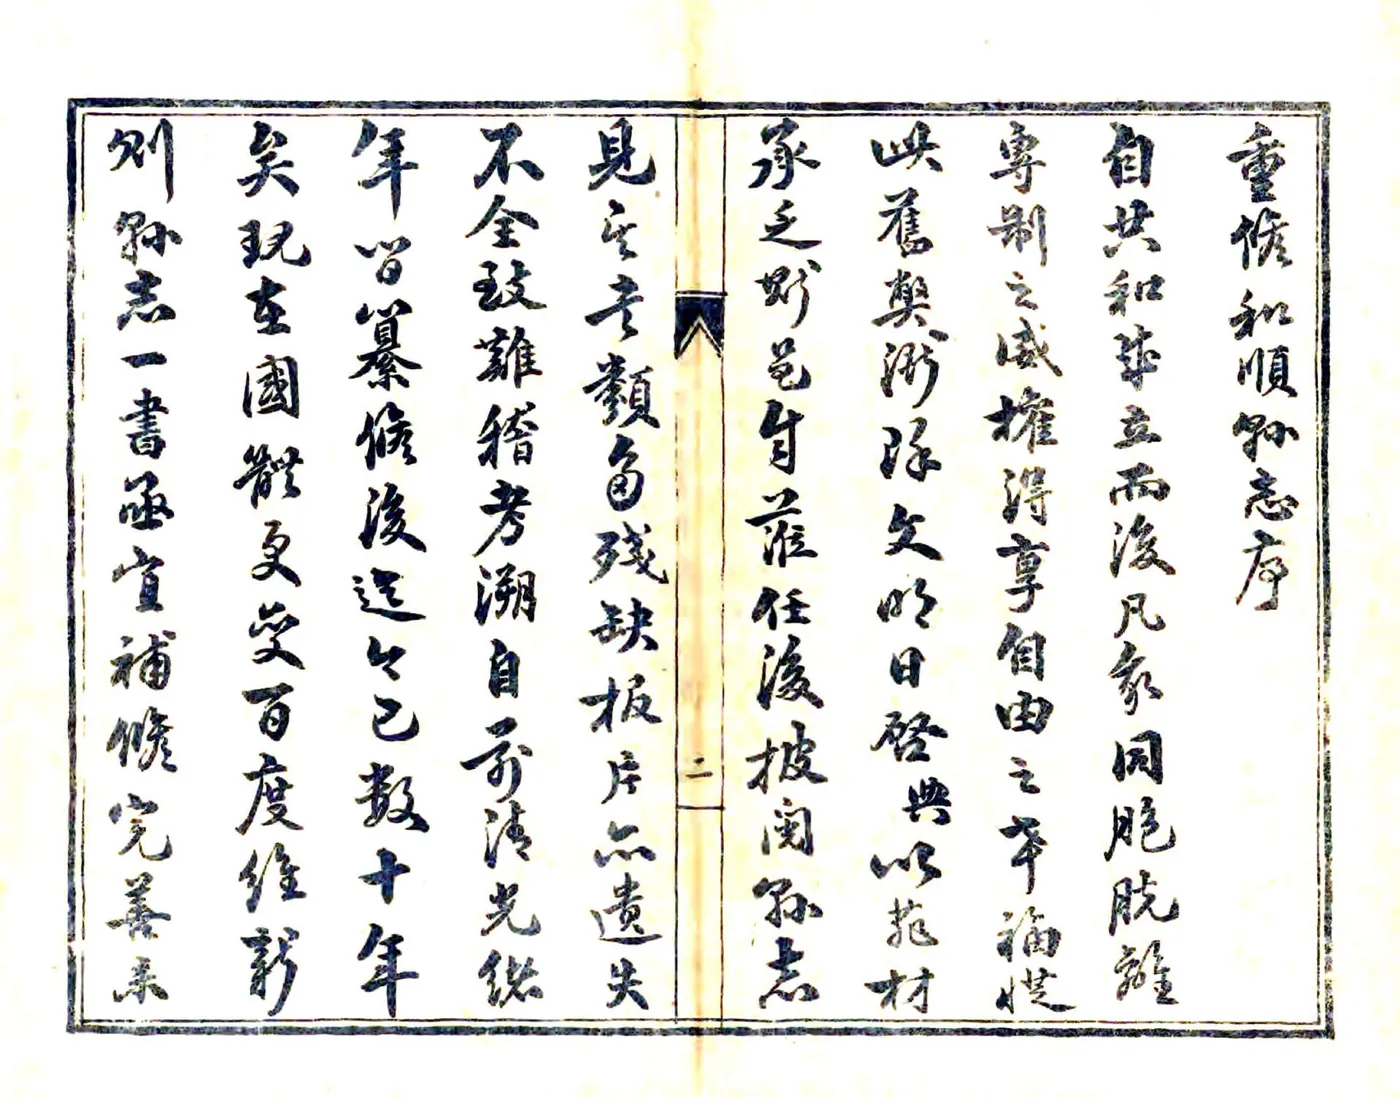 重修和順縣志序
自共和成立而後凡我同胞脫離
專制之威權得享自由之幸福從
此舊弊漸除文明日啓典以菲材
承乏斯邑自蒞任後披閱縣志
見其書類多殘缺板片亦遺失
不全致難稽考溯自前清光緒
年間纂修後迄今已數十年
矣現在國體更變百度維新
則縣志一書亟宜補修完善未
二